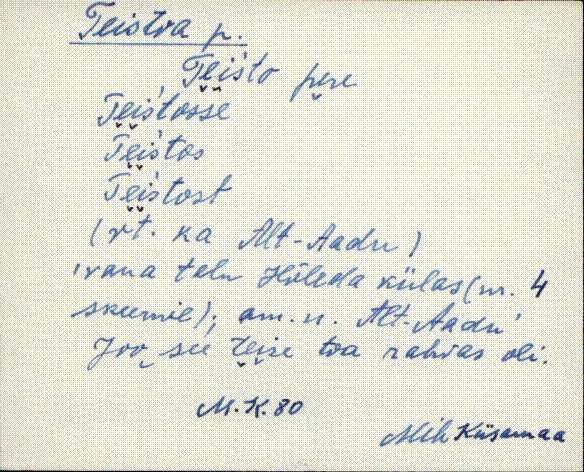 Teistva p.
Tei̬s'to pere
Tei̬s'tosse
Tei̬s'tos
Tei̬s'tost
(vt. ka Alt-Aadu)
'vana talu Hõleda külas (nr. 4
skeemil); am. n. Alt-Aadu'
Joo, see teise toa rahvas oli.
M.K. 80
Mih Kiisamaa